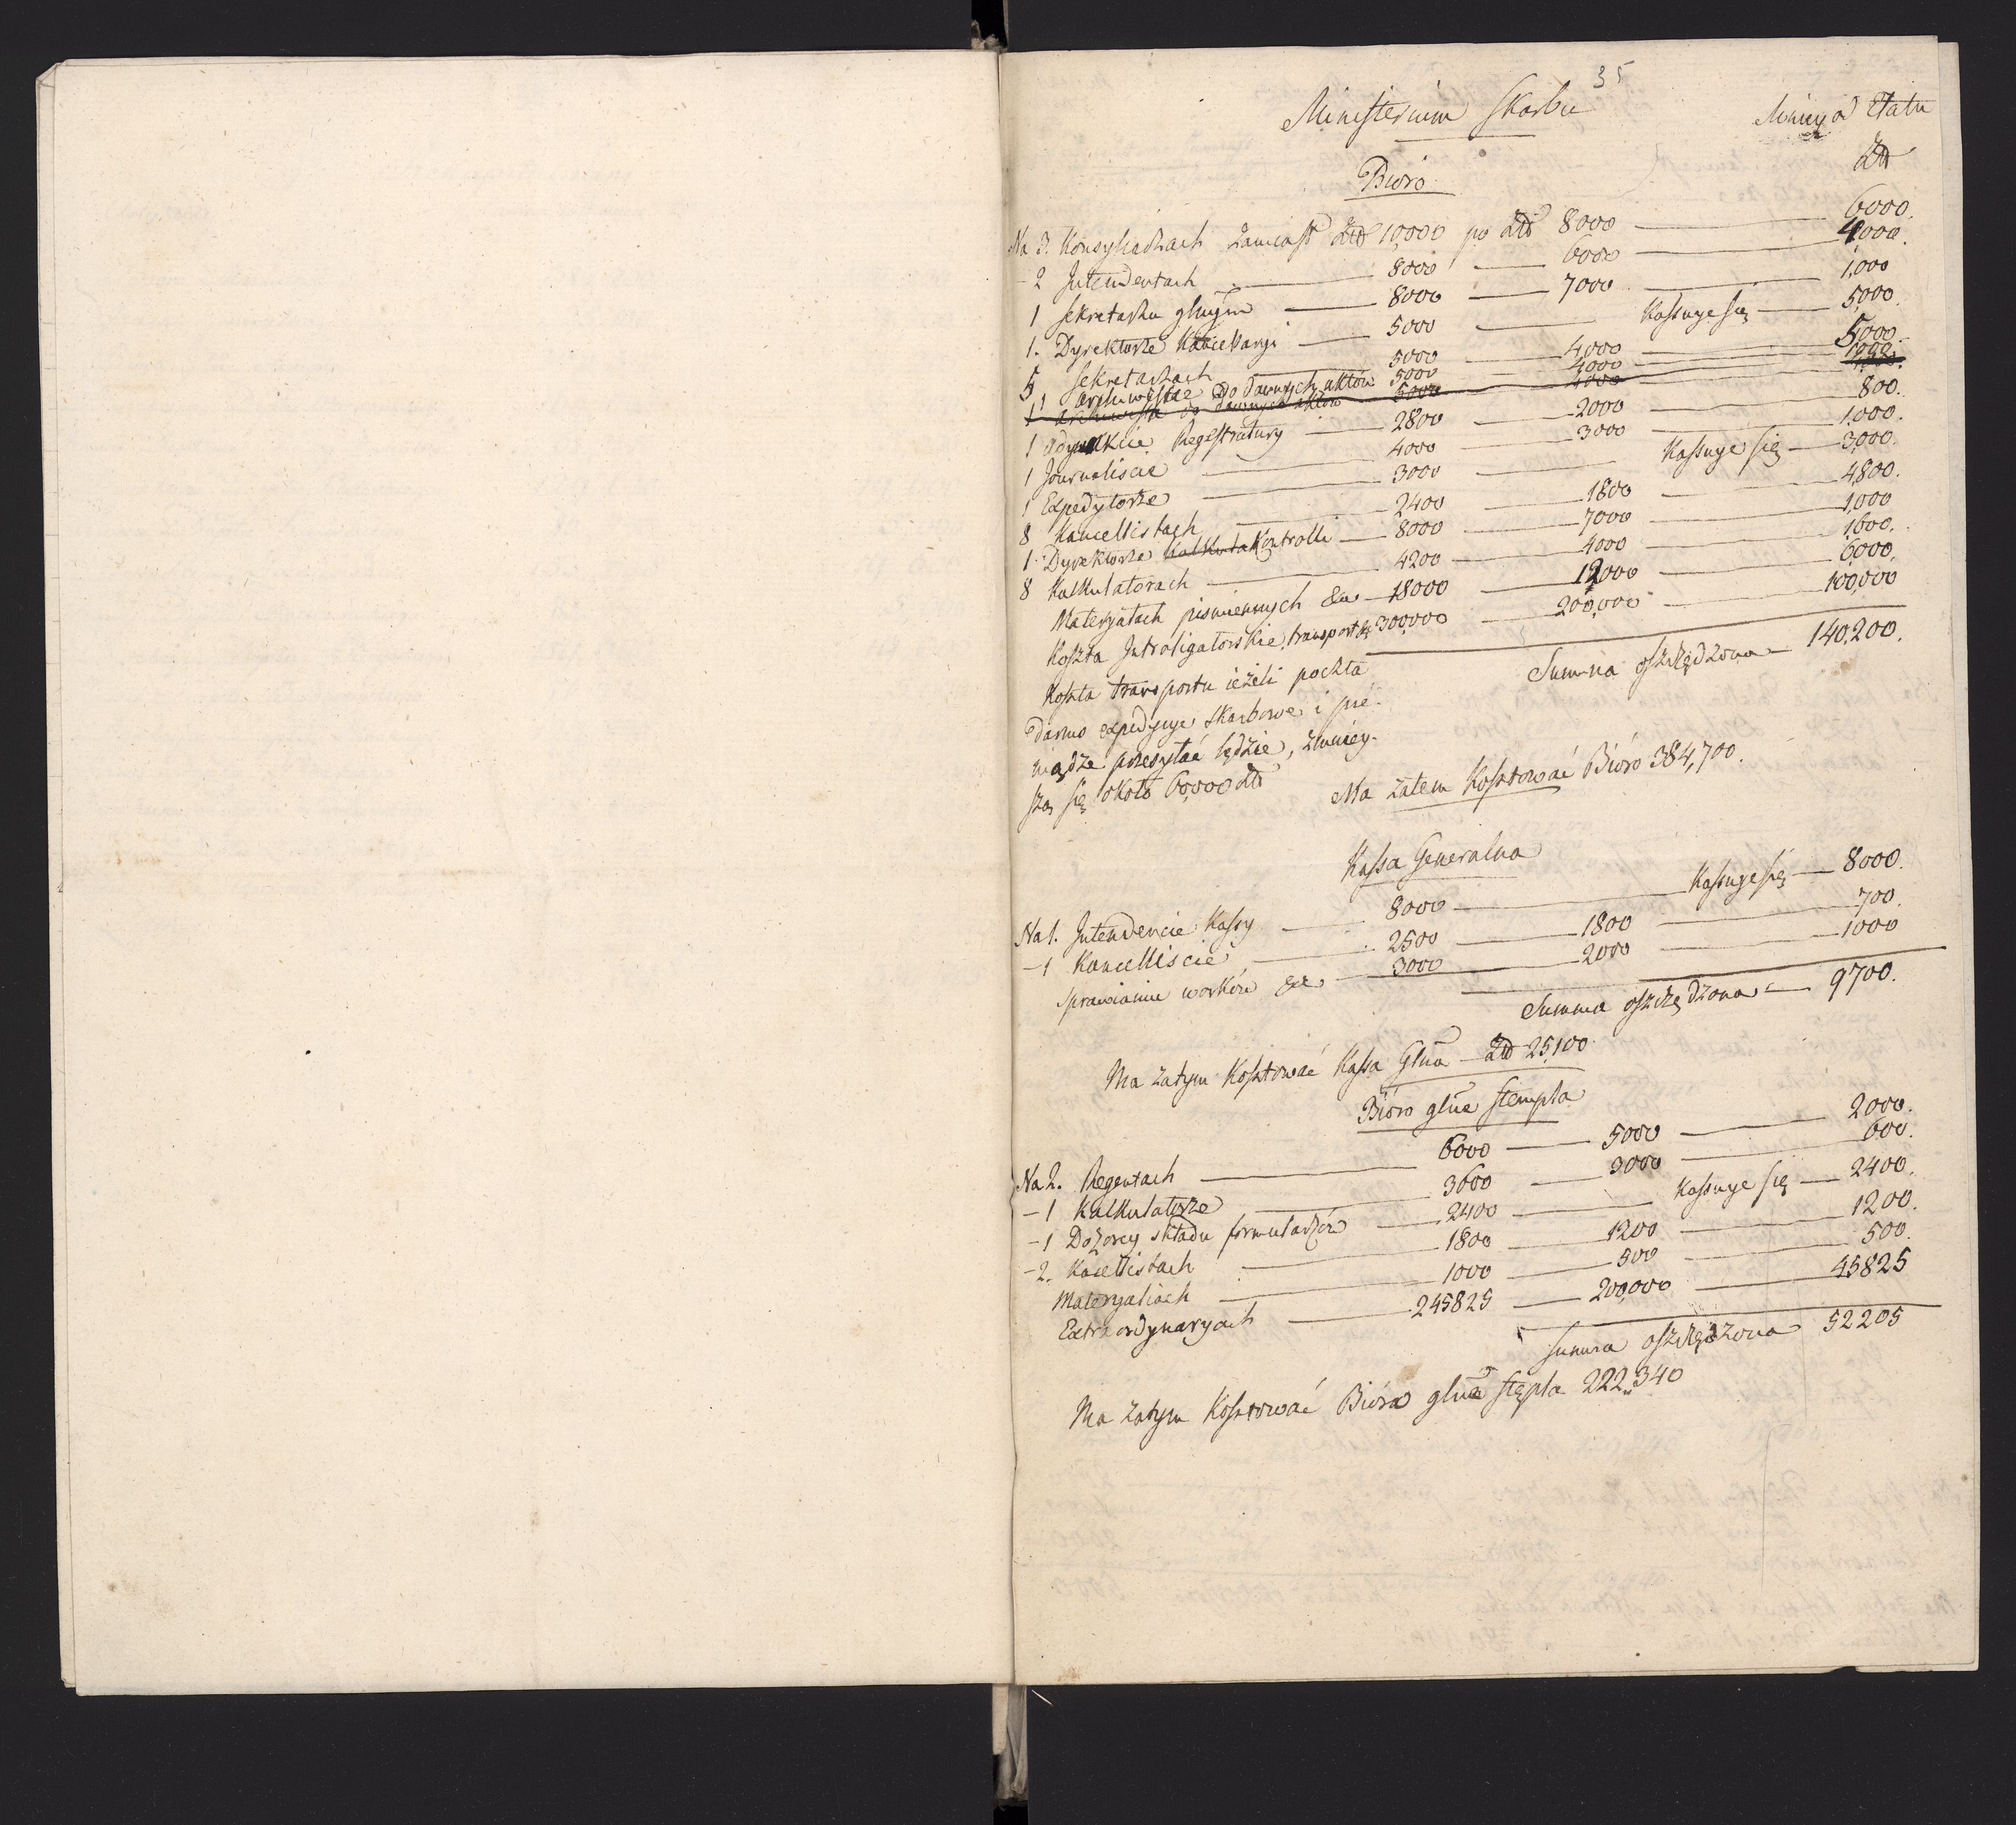 35
Ministerium Skarbu
Mniey od Etatu
Złł
Biuro
Na 3. Konsyliarzach zamiast Złł 10,000 po Złł 8000 — 6000.
- 2 Intendentach — 8000 — 6000 — 4000.
1 Sekretarzu głnym — 8000 — 7000 — 1,000
1. Dyrektorze Kancellaryi — 5000 — Kassuje się — 5,000.
5 Sekretarzach — 5000 — 4,000 — 5,000.
1 Archiwiście do dawnych aktów 5000 — 4000 — 1,000.
1 Archiwista do dawnych aktów 5000 — 4000
1 Adjunkcie Regestratury — 2800 — 2000 — 800.
1 Journaliscie — 4000 — 3000 — 1,000.
1 Expedytorze — 3000 — Kassuje się — 3,000.
8 Kancellistach — 2400 — 1800 — 4,800.
1. Dyrektorze Kalkula Kontrolli — 8000 — 7000 — 1,000
8 Kalkulatorach — 4200 — 4000 — 1,600.
Materyałach pismiennych &a — 18000 — 12000 — 6,000.
Koszta Introligatorskie, transport &c 300,000 — 200,000 — 100,000
Summa oszczędzona — 140,200.
Koszta transportu ieżeli poczta
darmo expedycye skarbowe i pie-
niądze przesyłać będzie, zmniey-
szą się około 60,000 złł
Ma zatem kosztować Biuro 384,700.
Kassa Generalna
Na 1. Intendencie Kassy — 8000 — Kassuje się — 8000.
- 1 Kancelliscie — 2500 — 1800 — 700.
Sprawianiu worków &c — 3000 — 2000 — 1000
Summa oszczędzona — 9700.
Ma zatym kosztować Kassa Głna Złł 25,100
Biuro głne stempla
Na 2. Regentach — 6000 — 5000 — 2000.
- 1 Kalkulatorze — 3600 — 3000 — 600.
- 1 Dozorcy składu formularzów — 2400 — Kassuje się — 2400.
- 2. Kacellistach — 1800 — 1200 — 1200.
Materyaliach — 1000 — 500 — 500.
Extraordynaryach — 245825 — 200,000 — 45825
Summa oszczędzona 52205
Ma zatym kosztować Biuro głne stępla 222„340